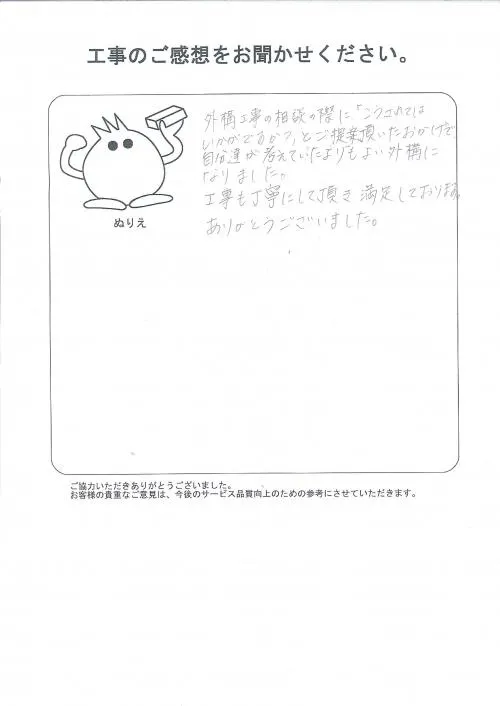 工事のご感想をお聞かせください。
外構工事の相談の際に「こうされては
いかがですか？」とご提案頂いたおかげで
自分達が考えていたよりもよい外構に
なりました。
工事も丁寧にして頂き満足しております。
ありがとうございました。
ぬりえ
ご協力いただきありがとうございました。
お客様の貴重なご意見は、今後のサービス品質向上のための参考にさせていただきます。